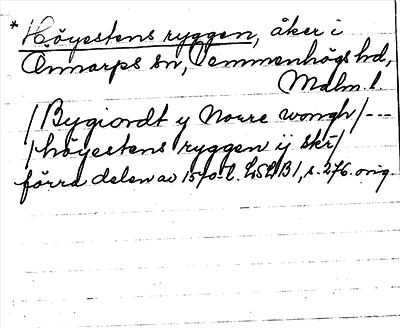 * Höyestens ryggen, åker i
Önnarps sn, Vemmenhögs hd,
Malm. l.
/Bygiordt y Norre wongh/---
/höyestens ryggen ij skr/
förra delen av 1570. l. LSLB1, s. 276. orig.